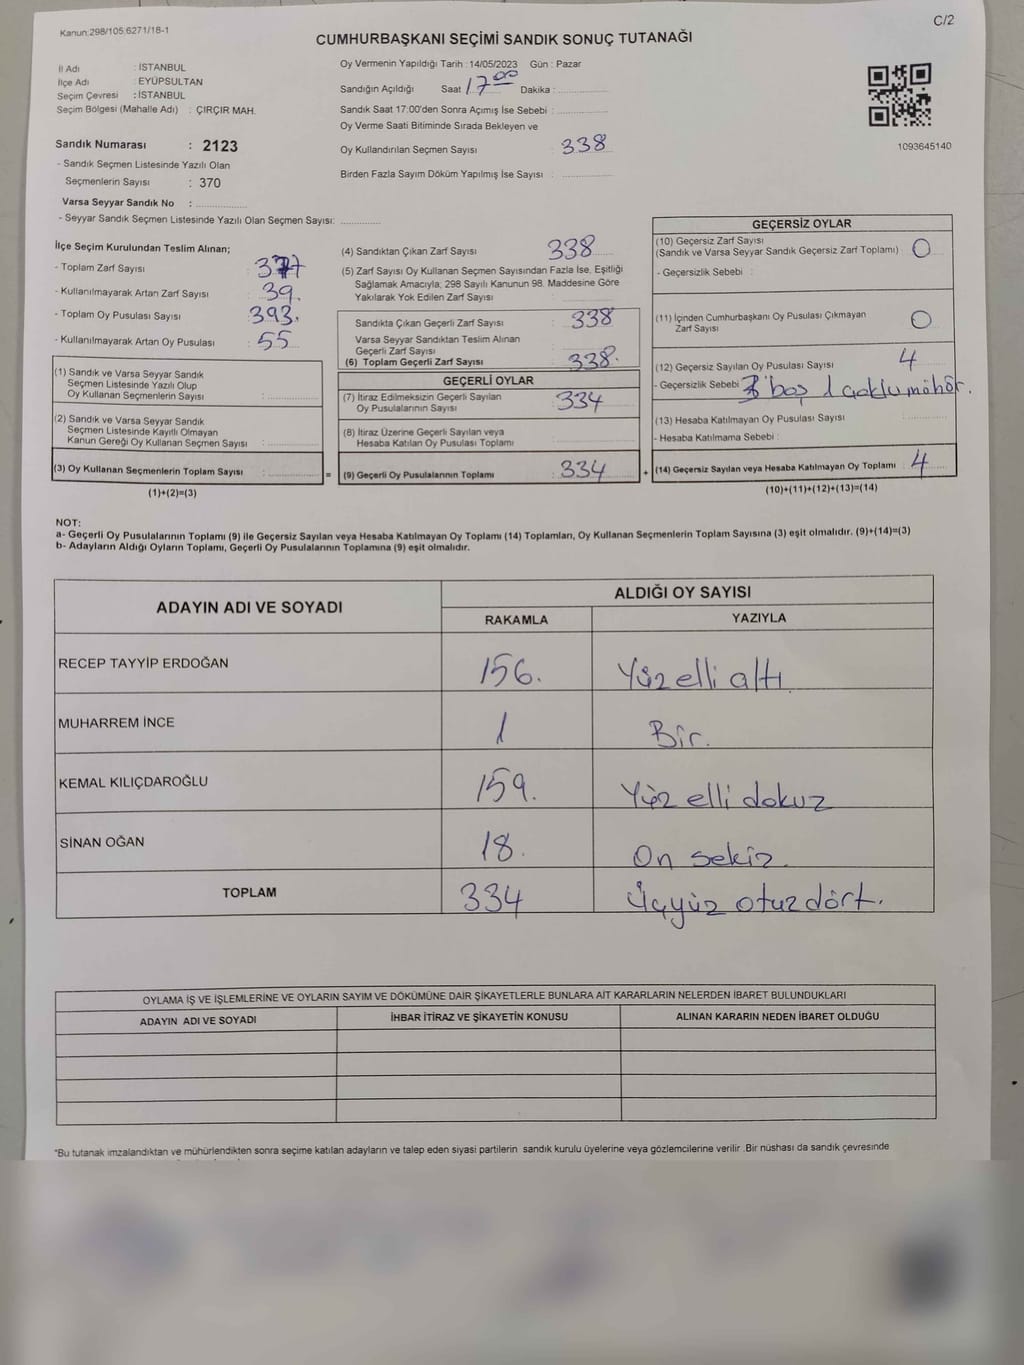 Kanun:298/105.6271/18-1
C/2
CUMHURBAŞKANI SEÇİMİ SANDIK SONUÇ TUTANAĞI
İl Adı : İSTANBUL
İlçe Adı : EYÜPSULTAN
Seçim Çevresi : İSTANBUL
Seçim Bölgesi (Mahalle Adı) : ÇIRÇIR MAH.
Sandık Numarası : 2123
- Sandık Seçmen Listesinde Yazılı Olan
Seçmenlerin Sayısı : 370
Varsa Seyyar Sandık No :
- Seyyar Sandık Seçmen Listesinde Yazılı Olan Seçmen Sayısı:
Oy Vermenin Yapıldığı Tarih : 14/05/2023 Gün : Pazar
Sandığın Açıldığı Saat 17 00 Dakika :
Sandık Saat 17:00'den Sonra Açımış İse Sebebi :
Oy Verme Saati Bitiminde Sırada Bekleyen ve
Oy Kullandırılan Seçmen Sayısı : 338
Birden Fazla Sayım Döküm Yapılmış İse Sayısı :
1093645140
İlçe Seçim Kurulundan Teslim Alınan;
- Toplam Zarf Sayısı : 377
- Kullanılmayarak Artan Zarf Sayısı : 39.
- Toplam Oy Pusulası Sayısı : 393.
- Kullanılmayarak Artan Oy Pusulası : 55
(1) Sandık ve Varsa Seyyar Sandık
Seçmen Listesinde Yazılı Olup
Oy Kullanan Seçmenlerin Sayısı :
(2) Sandık ve Varsa Seyyar Sandık
Seçmen Listesinde Kayıtlı Olmayan
Kanun Gereği Oy Kullanan Seçmen Sayısı :
(3) Oy Kullanan Seçmenlerin Toplam Sayısı :
(1)+(2)=(3)
(4) Sandıktan Çıkan Zarf Sayısı : 338
(5) Zarf Sayısı Oy Kullanan Seçmen Sayısından Fazla İse, Eşitliği
Sağlamak Amacıyla; 298 Sayılı Kanunun 98. Maddesine Göre
Yakılarak Yok Edilen Zarf Sayısı :
Sandıkta Çıkan Geçerli Zarf Sayısı : 338
Varsa Seyyar Sandıktan Teslim Alınan
Geçerli Zarf Sayısı :
(6) Toplam Geçerli Zarf Sayısı : 338.
GEÇERLİ OYLAR
(7) İtiraz Edilmeksizin Geçerli Sayılan
Oy Pusulalarının Sayısı : 334
(8) İtiraz Üzerine Geçerli Sayılan veya
Hesaba Katılan Oy Pusulası Toplamı :
= (9) Geçerli Oy Pusulalarının Toplamı : 334 +
GEÇERSİZ OYLAR
(10) Geçersiz Zarf Sayısı
(Sandık ve Varsa Seyyar Sandık Geçersiz Zarf Toplamı) : 0
- Geçersizlik Sebebi :
(11) İçinden Cumhurbaşkanı Oy Pusulası Çıkmayan
Zarf Sayısı : 0
(12) Geçersiz Sayılan Oy Pusulası Sayısı : 4
- Geçersizlik Sebebi : 3 boş 1 çoklu möhör.
(13) Hesaba Katılmayan Oy Pusulası Sayısı :
- Hesaba Katılmama Sebebi :
(14) Geçersiz Sayılan veya Hesaba Katılmayan Oy Toplamı : 4
(10)+(11)+(12)+(13)=(14)
NOT:
a- Geçerli Oy Pusulalarının Toplamı (9) ile Geçersiz Sayılan veya Hesaba Katılmayan Oy Toplamı (14) Toplamları, Oy Kullanan Seçmenlerin Toplam Sayısına (3) eşit olmalıdır. (9)+(14)=(3)
b- Adayların Aldığı Oyların Toplamı, Geçerli Oy Pusulalarının Toplamına (9) eşit olmalıdır.
ADAYIN ADI VE SOYADI ALDIĞI OY SAYISI
RAKAMLA YAZIYLA
RECEP TAYYİP ERDOĞAN 156. Yüz elli altı
MUHARREM İNCE 1 Bir.
KEMAL KILIÇDAROĞLU 159. Yüz elli dokuz
SİNAN OĞAN 18. On sekiz.
TOPLAM 334 Üçyüz otuz dört.
OYLAMA İŞ VE İŞLEMLERİNE VE OYLARIN SAYIM VE DÖKÜMÜNE DAİR ŞİKAYETLERLE BUNLARA AİT KARARLARIN NELERDEN İBARET BULUNDUKLARI
ADAYIN ADI VE SOYADI İHBAR İTİRAZ VE ŞİKAYETİN KONUSU ALINAN KARARIN NEDEN İBARET OLDUĞU
*Bu tutanak imzalandıktan ve mühürlendikten sonra seçime katılan adayların ve talep eden siyasi partilerin sandık kurulu üyelerine veya gözlemcilerine verilir .Bir nüshası da sandık çevresinde